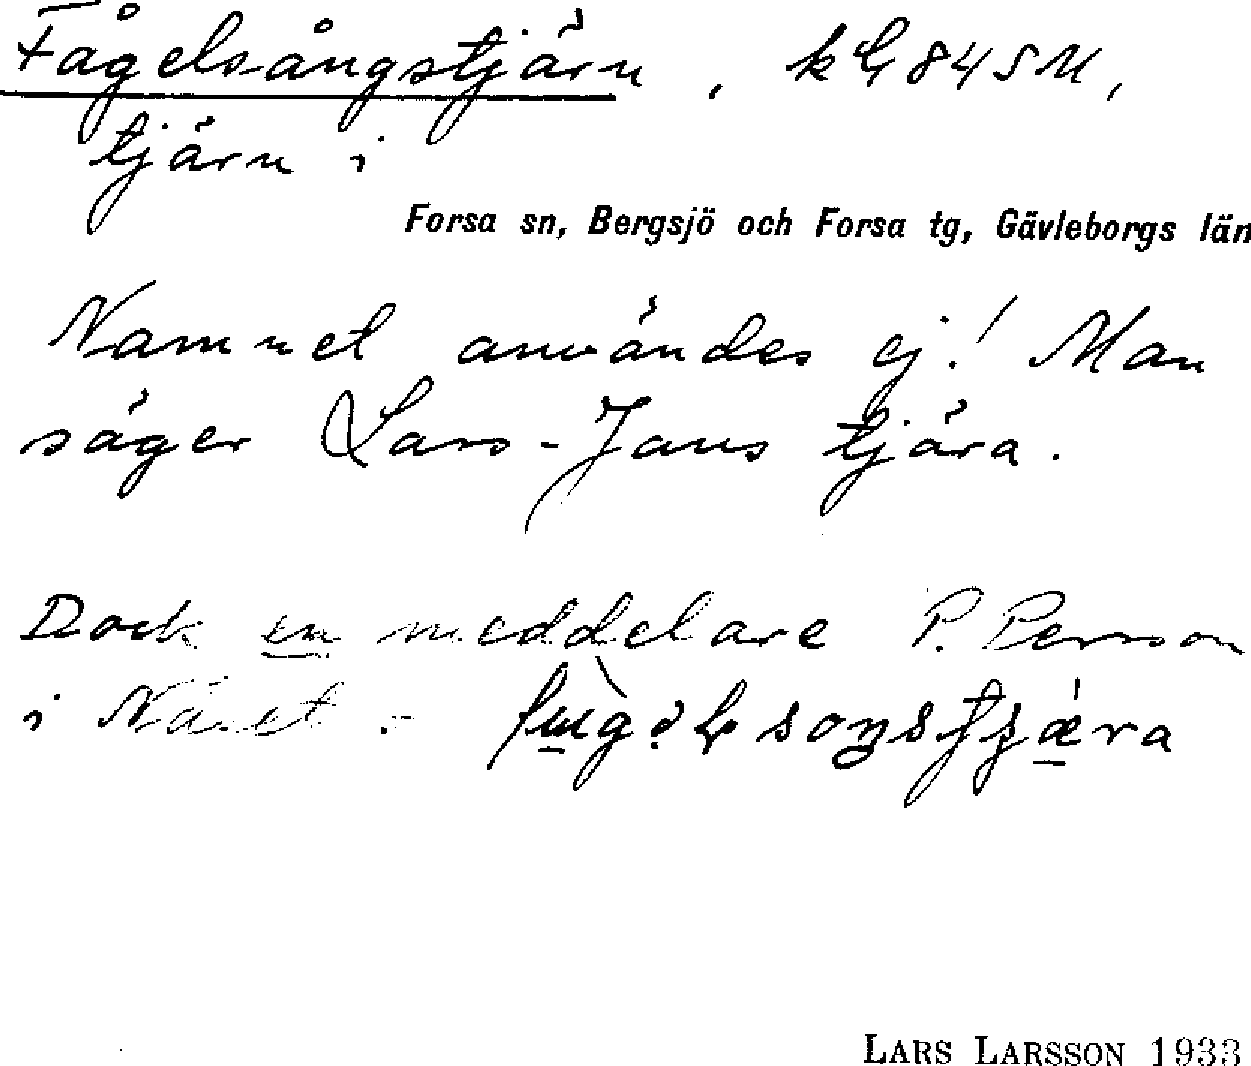 Fågelsångstjärn, kG 845M,
tjärn i
Forsa sn, Bergsjö och Forsa tg, Gävleborgs län
Namnet användes ej! Man
säger Lars-Jans tjära.
Dock en meddelare P. Persson
i Näset -
LARS LARSSON 1933